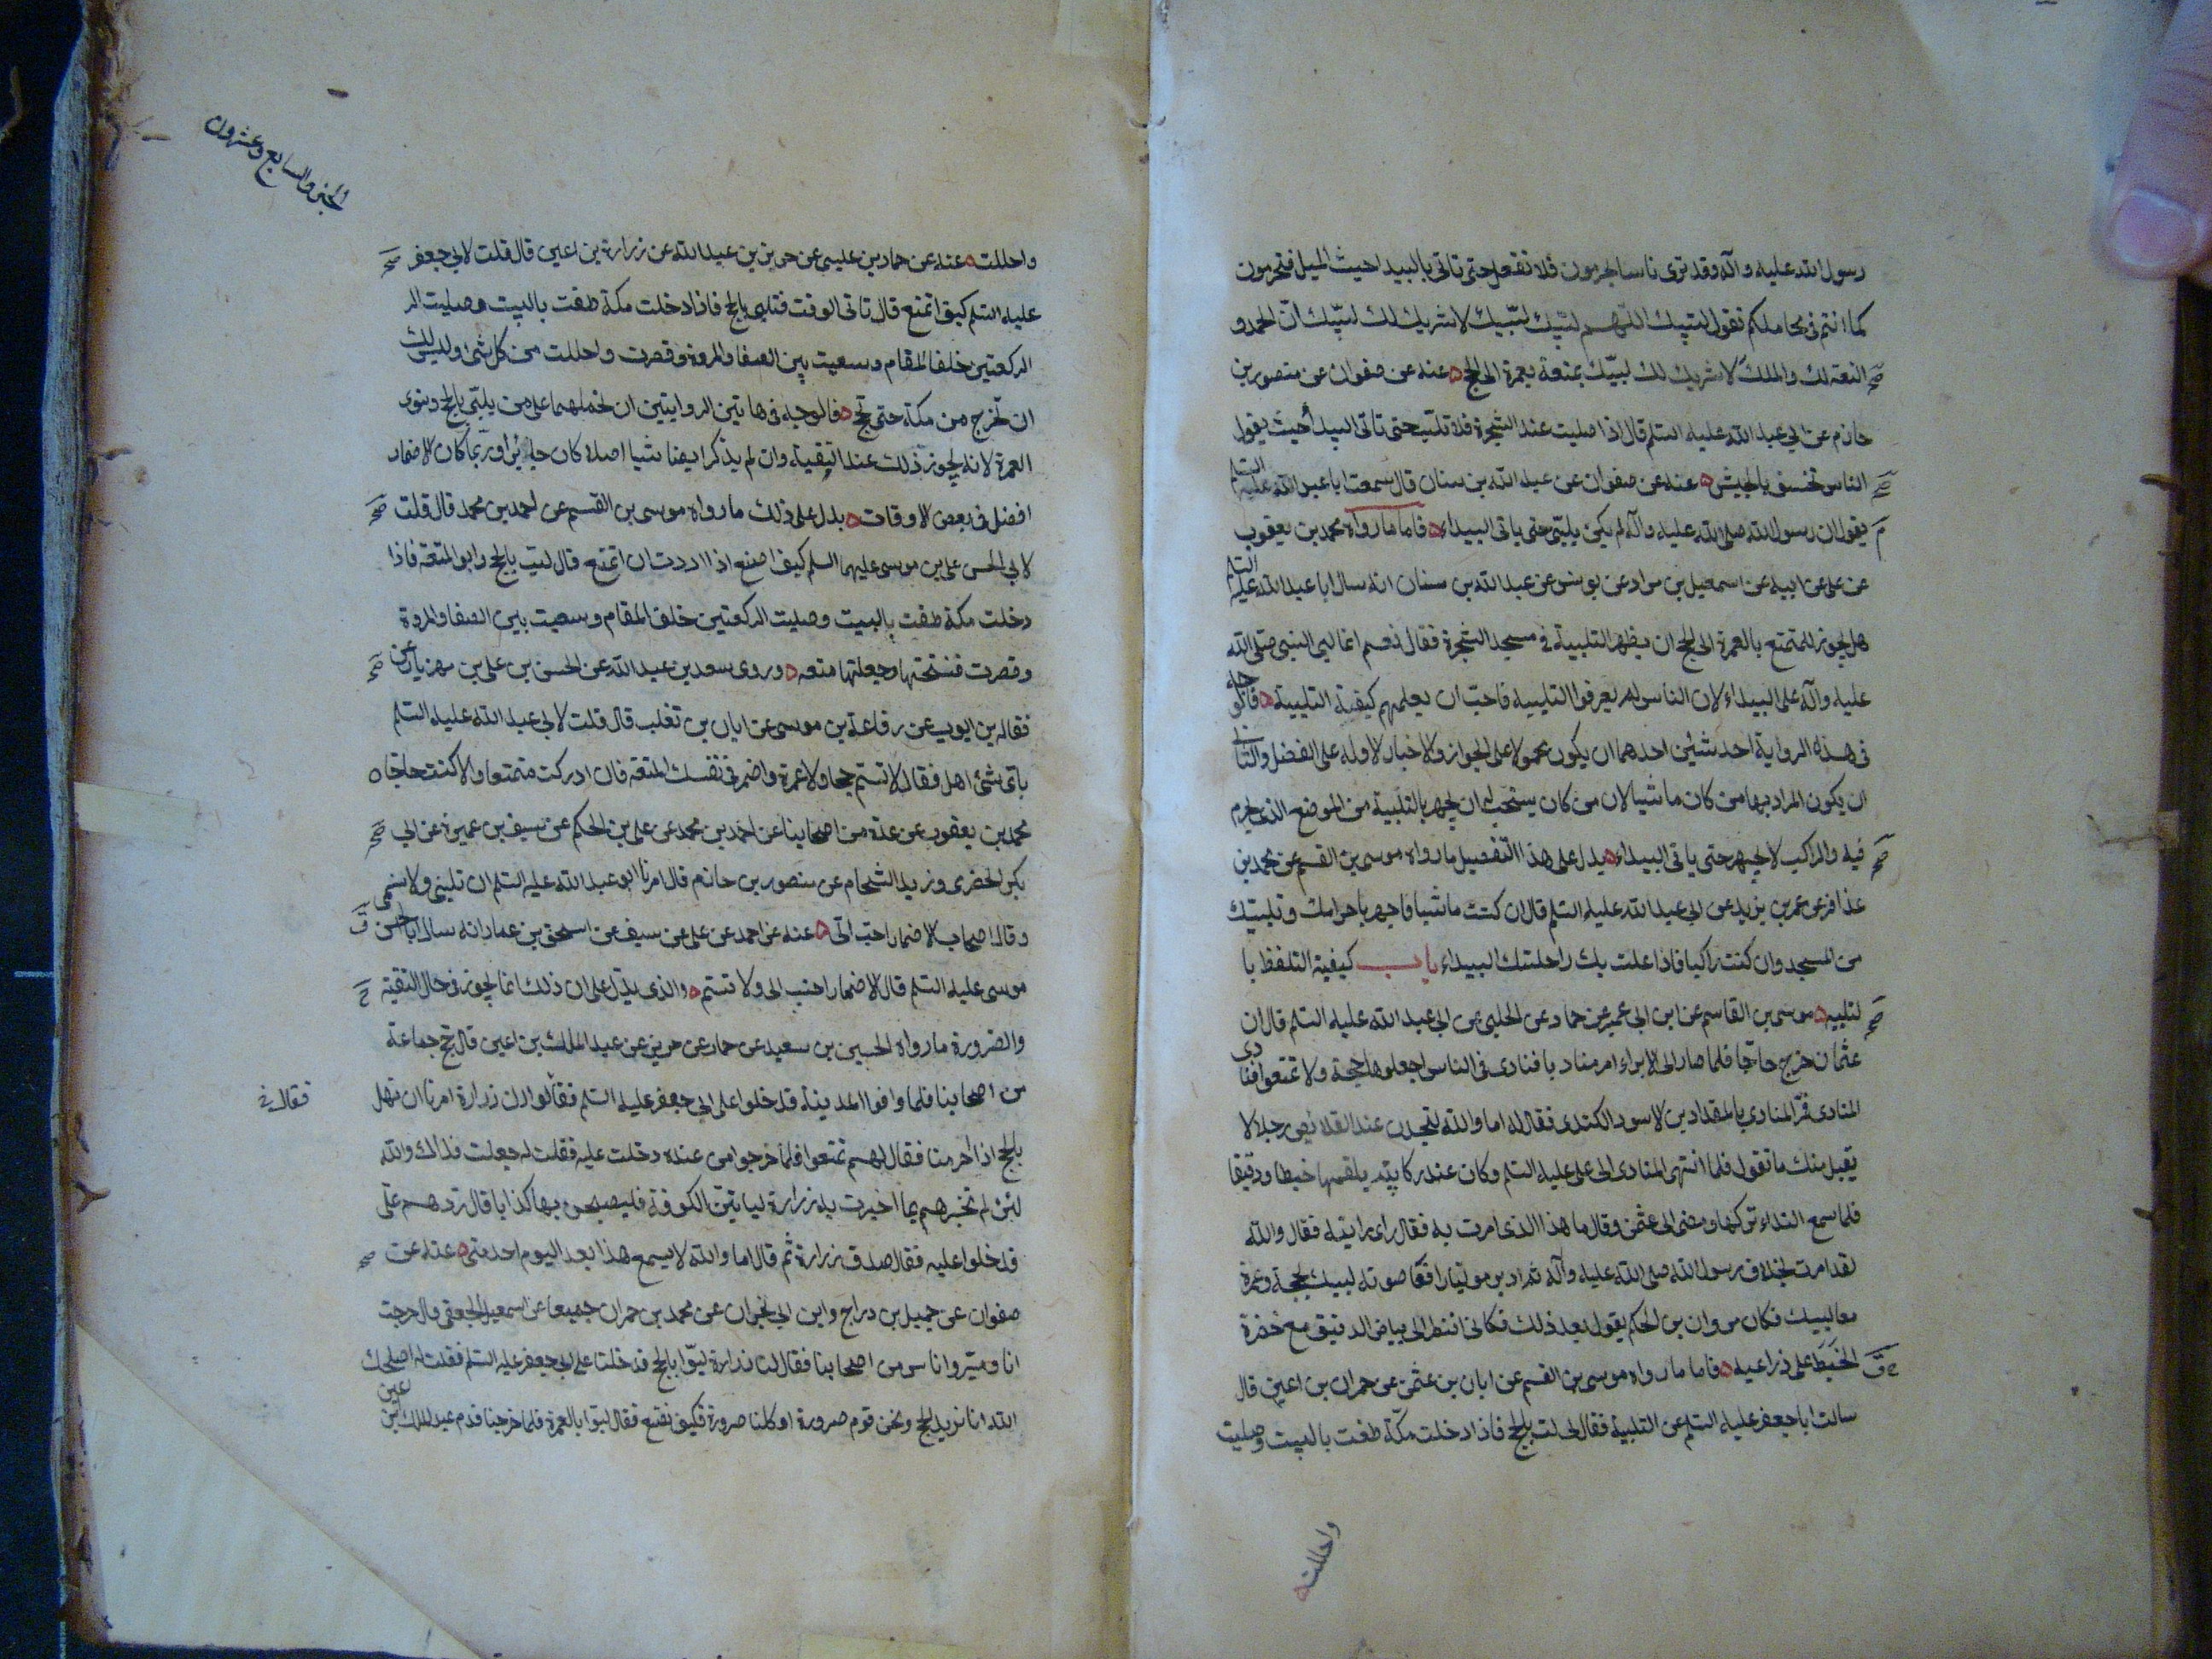 رسول الله عليه وآله وقد ترى ناسا يحرمون فلا تفعل حتى تاتى بالبيدا حيث الميل فتحرمون
كما انتم فى محاملكم تقول لبيك اللهم لبيك لبيك لا شريك لك لبيك ان الحمد و
النعمة لك والملك لا شريك لك لبيك بمتعة بعمرة الى الحج ه عنه عن صفوان عن منصور بن
حازم عن ابى عبد الله عليه السلم قال اذا صليت عند الشجرة فلا تلب حتى تاتى البيدأ حيث يقول
الناس تخسف بالجيش ه عنه عن صفوان عن عبد الله بن سنان قال سمعت ابا عبد الله عليه السلم
يقول ان رسول الله صلى الله عليه وآله لم يكن يلبى حتى ياتى البيداء ه فاما ما رواه محمد بن يعقوب
عن على عن ابيه عن اسمعيل بن مراد عن يونس عن عبد الله بن سنان انه سال ابا عبد الله عليه السلم
هل يجوز للمتمتع بالعمرة الى الحج ان يظهر التلبية فى مسجد الشجرة فقال نعم انما لبى النبى صلى الله
عليه وآله على البيداء لان الناس لم يعرفوا التلبيه فاحب ان يعلمهم كيفية التلبية ه فالوجه
فى هذه الرواية احد شئين احدهما ان يكون محمولا على الجواز والاخبار الاوله على الفضل والثانى
ان يكون المراد بها من كان ماشيا لان من كان يستحب له ان يجهر بالتلبية من الموضع الذى يحرم
فيه والراكب لا يجهر حتى ياتى البيداء ه يدل على هذا التفصيل ما رواه موسى بن القسم عن محمد بن
عذافر عن عمر بن يزيد عن ابى عبد الله عليه السلم قال ان كنت ماشيا فاجهر باحرامك وتلبيتك
من المسجد وان كنت راكبا فاذا علت بك راحلتك البيداء باب كيفية التلفظ با
لتلبيه ه موسى بن القاسم عن ابن ابى عمير عن حماد عن الحلبى عن ابى عبد الله عليه السلم قال ان
عثمان خرج حاجا فلما صار الى الابواء امر مناديا فنادى فى الناس اجعلوها حجة ولا تمتعوا فنادى
المنادى فمر المنادى بالمقداد بن الاسود الكندى فقال له اما والله لتجدن عند القلائص رجلا لا
يقبل منك ما تقول فلما انتهى المنادى الى على عليه السلم وكان عند ركايبه يلقمها خبطا ودقيقا
فلما سمع النداء تركها ومضى الى عثمن وقال ما هذا الذى امرت به فقال راى رايته فقال والله
لقد امرت بخلاف رسول الله صلى الله عليه وآله ثم ادبر موليا رافعا صوته لبيك بحجة وعمرة
معا لبيك فكان مروان بن الحكم يقول بعد ذلك فكانى انظر الى بياض الدقيق مع خضرة
الخبط على ذراعيه ه فاما ما رواه موسى بن القسم عن ابان بن عثمن عن حمران بن اعين قال
سالت ابا جعفر عليه السلم عن التلبية فقال لى لب بالحج فاذا دخلت مكة طفت بالبيت وصليت
واحللت ه
الجزو السابع وعشرون
واحللت ه عنه عن حماد بن عيسى عن حريز بن عبد الله عن زرارة بن اعين قال قلت لابى جعفر
عليه السلم كيف اتمتع قال تاتى الوقت فتلبى بالحج فاذا دخلت مكة طفت بالبيت وصليت الر
الركعتين خلف المقام وسعيت بين الصفا والمروة وقصرت واحللت من كل شئ وليس لك
ان تخرج من مكة حتى تحج ه فالوجه فى هاتين الروايتين ان نحملهما على من يلبى بالحج وينوى
العمرة لانه يجوز ذلك عند التقية وان لم يذكر ايضا شيا اصلا كان جايزا وربما كان الاضمار
افضل فى بعض الاوقات ه يدل على ذلك ما رواه موسى بن القسم عن احمد بن محمد قال قلت
لابى الحسن على بن موسى عليهما السلم كيف اصنع اذا اردت ان اتمتع قال لب بالحج وانو المتعة فاذا
دخلت مكة طفت بالبيت وصليت الركعتين خلف المقام وسعيت بين الصفا والمروة
وقصرت فنسختها وجعلتها متعه ه وروى سعد بن عبد الله عن الحسن بن على بن مهزيار عن
فضاله بن ايوب عن رفاعة بن موسى عن ابان بن تغلب قال قلت لابى عبد الله عليه السلم
باى شئ اهل فقال لا تسم حجا ولا عمرة واضمر فى نفسك المتعة فان ادركت متمتعا والا كنت حاجا ه
محمد بن يعقوب عن عدة من اصحابنا عن احمد بن محمد عن على بن الحكم عن سيف بن عميرة عن ابى
بكر الحضرمى وزيد الشحام عن منصور بن حازم قال امرنا ابو عبد الله عليه السلم ان نلبى ولا نسمى
وقال اصحاب الاضمار احب الى ه عنه عن احمد عن على عن سيف عن اسحق بن عمار انه سال ابا الحسن
موسى عليه السلم قال الاضمار احب الى ولا تسم ه والذى يدل على ان ذلك انما يجوز فى حال التقية
والضرورة ما رواه الحسين بن سعيد عن حماد عن حريز عن عبد الملك بن اعين قال حج جماعة
من اصحابنا فلما وافوا المدينة فدخلوا على ابى جعفر عليه السلم فقالوا ان زرارة امرنا ان نهل
فقال
بالحج اذا احرمنا فقال لهم تمتعوا فلما خرجوا من عنده دخلت عليه فقلت له جعلت فداك والله
لئن لم تخبرهم بما اخبرت به زرارة لياتين الكوفة فليصبحن بها كذابا قال ردهم على
فدخلوا عليه فقال صدق زرارة ثم قال اما والله لا يسمع هذا بعد اليوم احد منى ه عنه عن
صفوان عن جميل بن دراج وابن ابى نجران عن محمد بن حمران جميعا عن اسمعيل الجعفى قال خرجت
انا وميسر واناس من اصحابنا فقال لنا زرارة لبوا بالحج فدخلنا على ابى جعفر عليه السلم فقلت له اصلحك
الله انا نريد الحج ونحن قوم صرورة او كلنا صرورة فكيف نصنع فقال لبوا بالعمرة فلما خرجنا قدم عبد الملك بن اعين